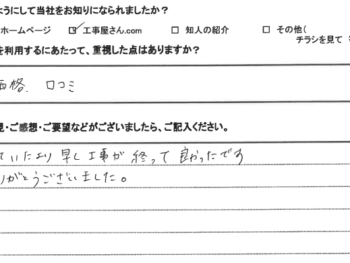 ようにして当社をお知りになられましたか？
ホームページ ☑ 工事屋さん.com □ 知人の紹介 □ その他（
チラシを見て
を利用するにあたって、重視した点はありますか？
価格、口コミ
見・ご感想・ご要望などがございましたら、ご記入ください。
ていたより早く工事が終って良かったです
りがとうございました。